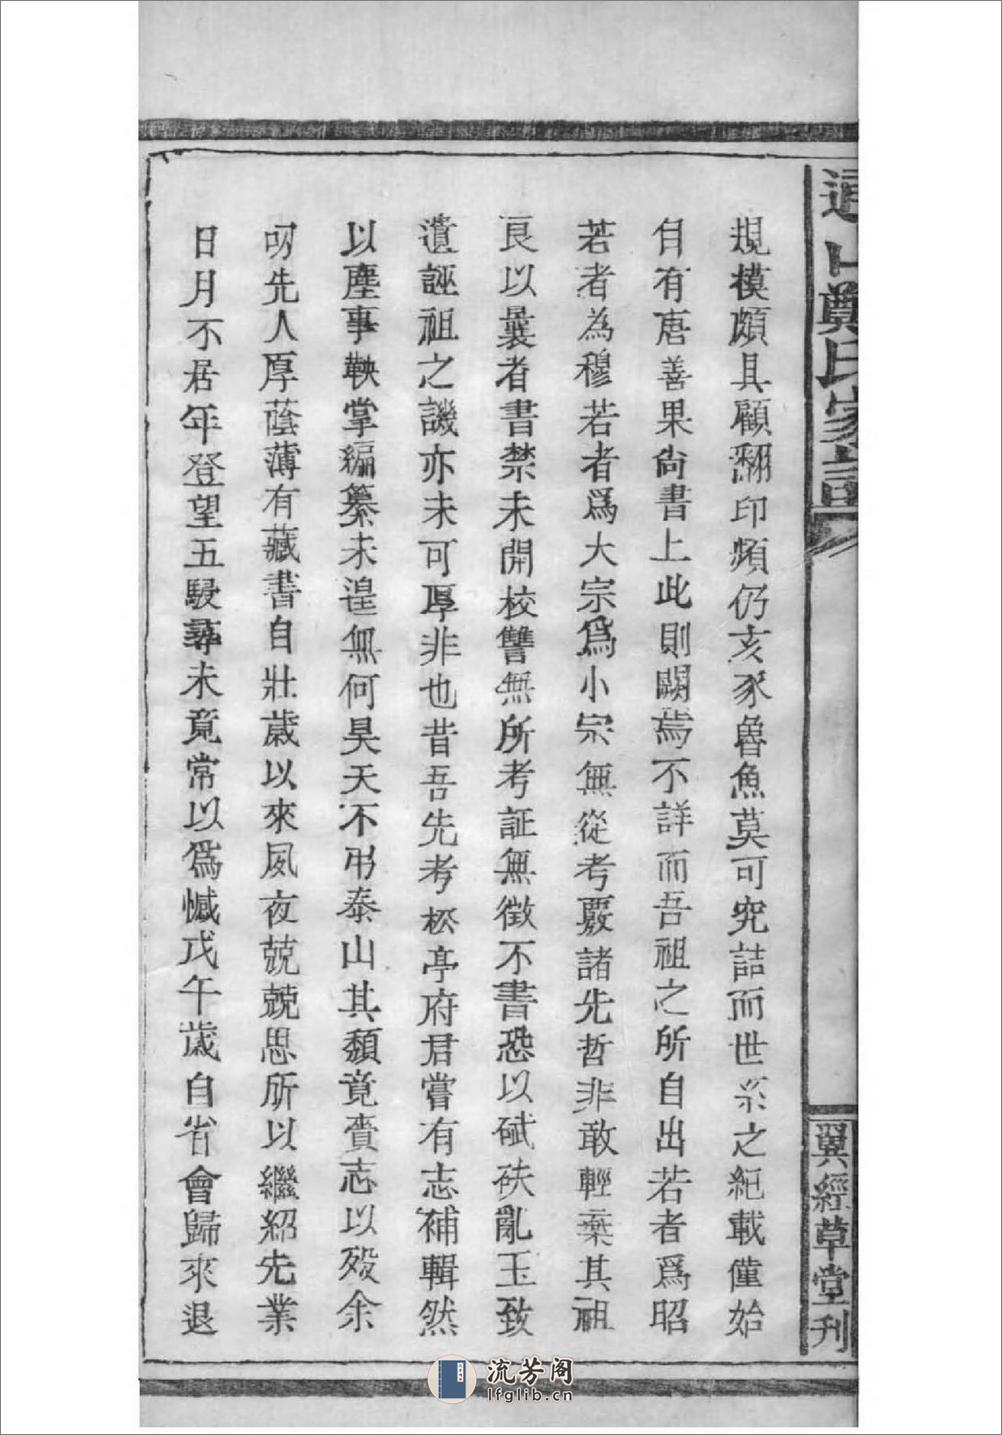 通山鄭氏家譜
翼經草堂刊
規模頗具顧翻印頻仍亥豕魯魚莫可究詰而世系之紀載僅始
自有唐善果尙書上此則闕焉不詳而吾祖之所自出若者爲昭
若者為穆若者爲大宗爲小宗無從考覈諸先哲非敢輕棄其祖
良以曩者書禁未開校讐無所考証無徵不書恐以碔砆亂玉致
遺誣祖之譏亦未可厚非也昔吾先考松亭府君嘗有志補輯然
以塵事鞅掌編纂未遑無何昊天不弔泰山其頹竟賫志以歿余
叨先人厚蔭薄有藏書自壯歲以來夙夜兢兢思所以繼紹先業
日月不居年登望五駸尋未竟常以爲憾戊午歲自省會歸來退
流芳阁
lfglib.cn